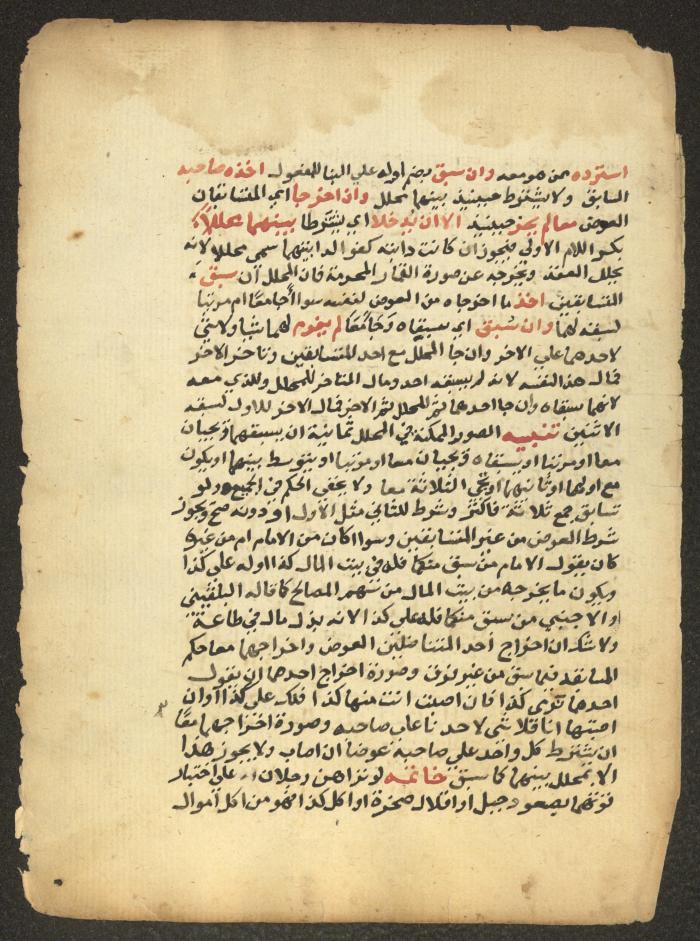 استرده ممن هو معه وان سبق بضم اوله علي البنا للمفعول اخذه صاحبه
السابق ولا يشترط حينيذ بينهما محلل وان اخرجا اي المتسابقان
العوض معا لم يجز حينيذ الا ان يدخلا اي يشترطا بينهما محللا
بكسر اللام الاولي فيجوز ان كانت دابته كفوا لدابتيهما سمي محللا لانه
يحلل العقد ويخرجه عن صورة القمار المحرمة فان المحلل ان سبق
المتسابقين اخذ ما اخرجاه من العوض لنفسه سوا اجا معا ام مرتبا
لسبقه لهما وان سبق اي سبقاه وجا معا لم يغرم لهما شيا ولا شي
لاحدهما علي الاخر وان جا المحلل مع احد المتسابقين وتاخر الاخر
فمال هذا لنفسه لانه لم يسبقه احد ومال المتاخر للمحلل وللذي معه
لانهما سبقاه وان جا احدهما ثم المحلل ثم الاخر فمال الاخر للاول لسبقه
الاثنين تنبيه الصور الممكنة في المحلل ثمانية ان يسبقهما ويجيان
معا او مرتبا او يسبقاه ويجيان معا او مرتبا او يتوسط بينهما او يكون
مع اولهما او ثانيهما او يجي الثلاثة معا ولا يخفي الحكم في الجميع ولو
تسابق جمع ثلاثة فاكثر وشرط للثاني مثل الاول او دونه صح ويجوز
شرط العوض من غير المتسابقين وسوا اكان من الامام ام من غيره
كان يقول الامام من سبق منكما فله في بيت المال كذا او له علي كذا
ويكون ما يخرجه من بيت المال من سهم المصالح كما قاله البلقيني
او الاجنبي من سبق منكما فله علي كذا لانه بذل مال في طاعة
ولا شك ان اخراج احد المتناضلين العوض واخراجهما معا حكم
المسابقة فيما سبق من غير فرق وصورة اخراج احدهما ان يقول
احدهما نرمي كذا فان اصبت انت منها كذا فلك علي كذا او ان
اصبتها انا فلا شي لاحدنا علي صاحبه وصورة اخراجهما معا
ان يشترط كل واحد علي صاحبه عوضا ان اصاب ولا يجوز هذا
الا بمحلل بينهما كما سبق خاتمه لو تراهن رجلان علي اختبار
قوتهما بصعود جبل او اقلال صخرة او اكل كذا فهو من اكل اموال